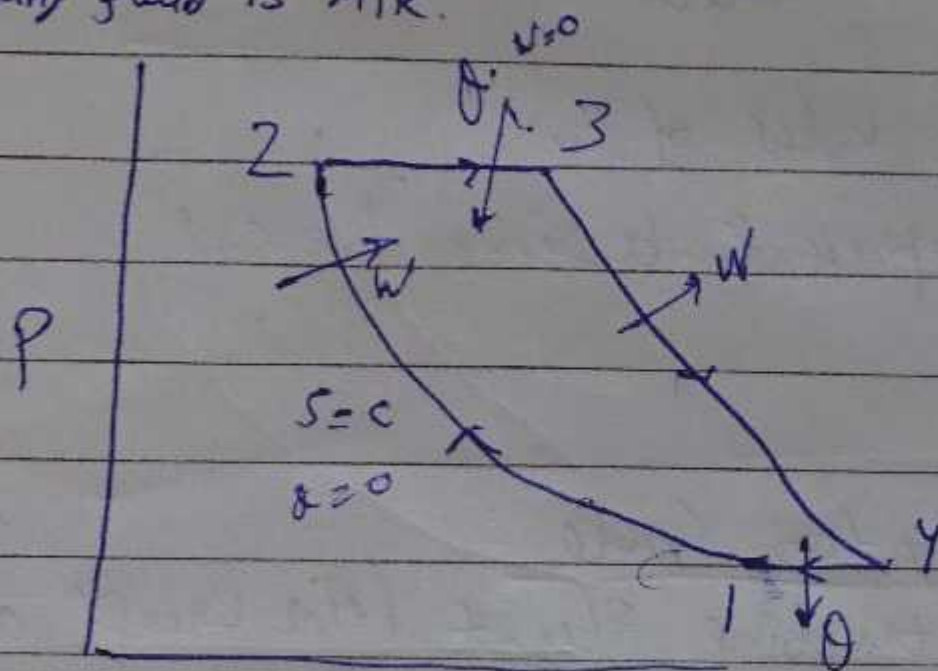 fluid is AIR.
W=0
Q
2
3
W
W
P
S=c
Q=0
1
4
Q